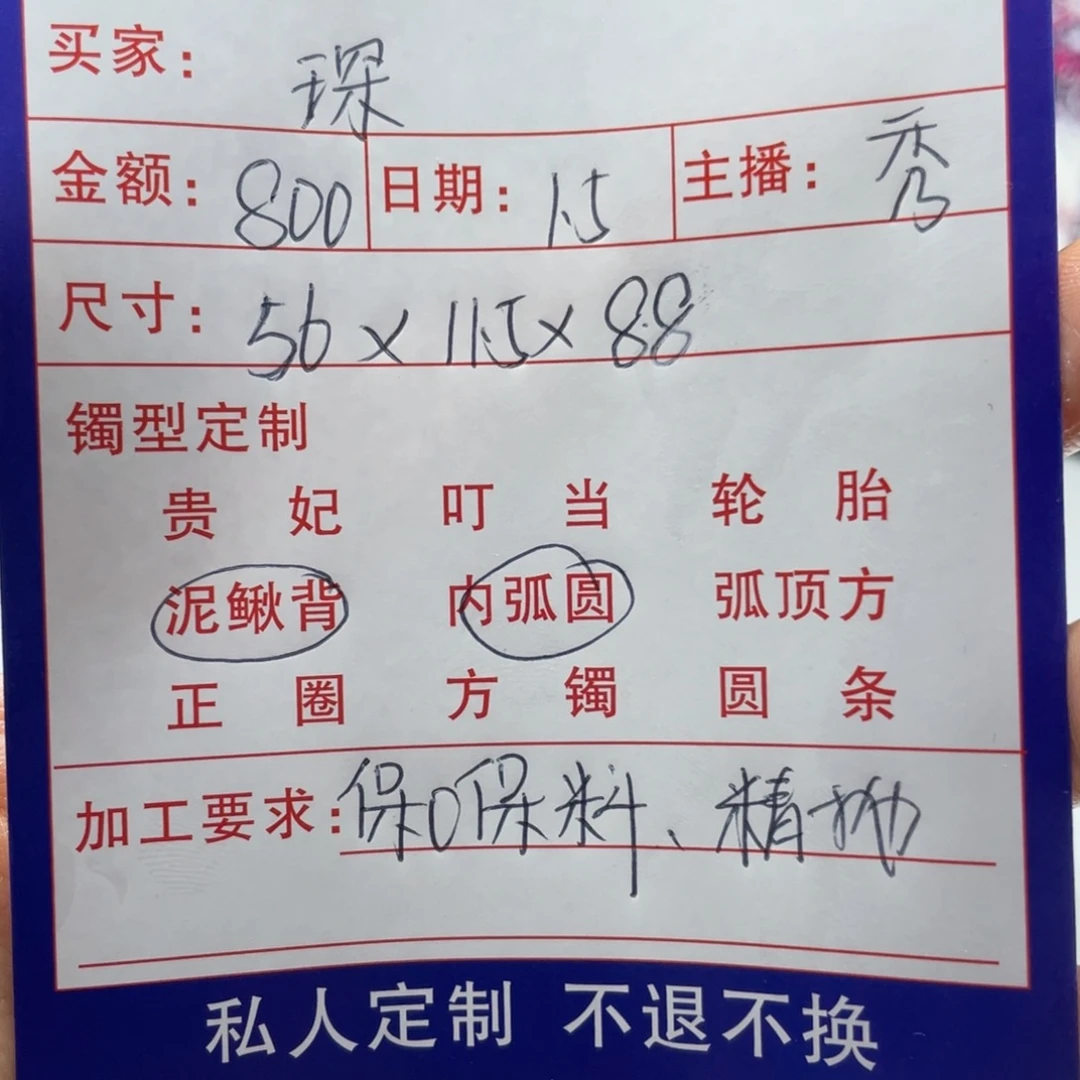 买家：琛
金额：800 日期：1.5 主播：秀
尺寸：56×11.5×8.8
镯型定制
贵妃 叮当 轮胎
泥鳅背 内弧圆 弧顶方
正圈 方镯 圆条
加工要求：保口保料、精抛
私人定制 不退不换